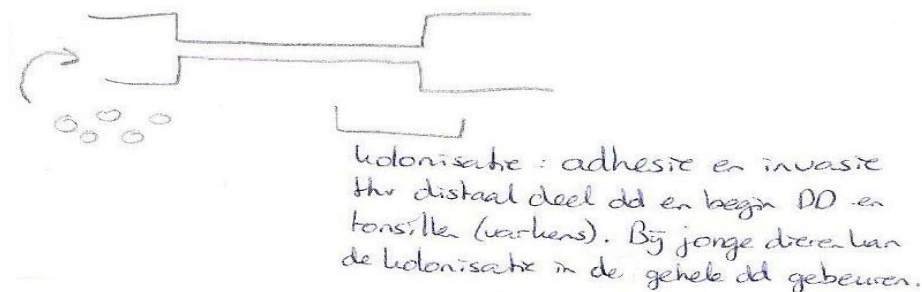 kolonisatie : adhesie en invasie
thv distaal deel dd en begin DD en
tonsillen (varkens). Bij jonge dieren kan
de kolonisatie in de gehele dd gebeuren.